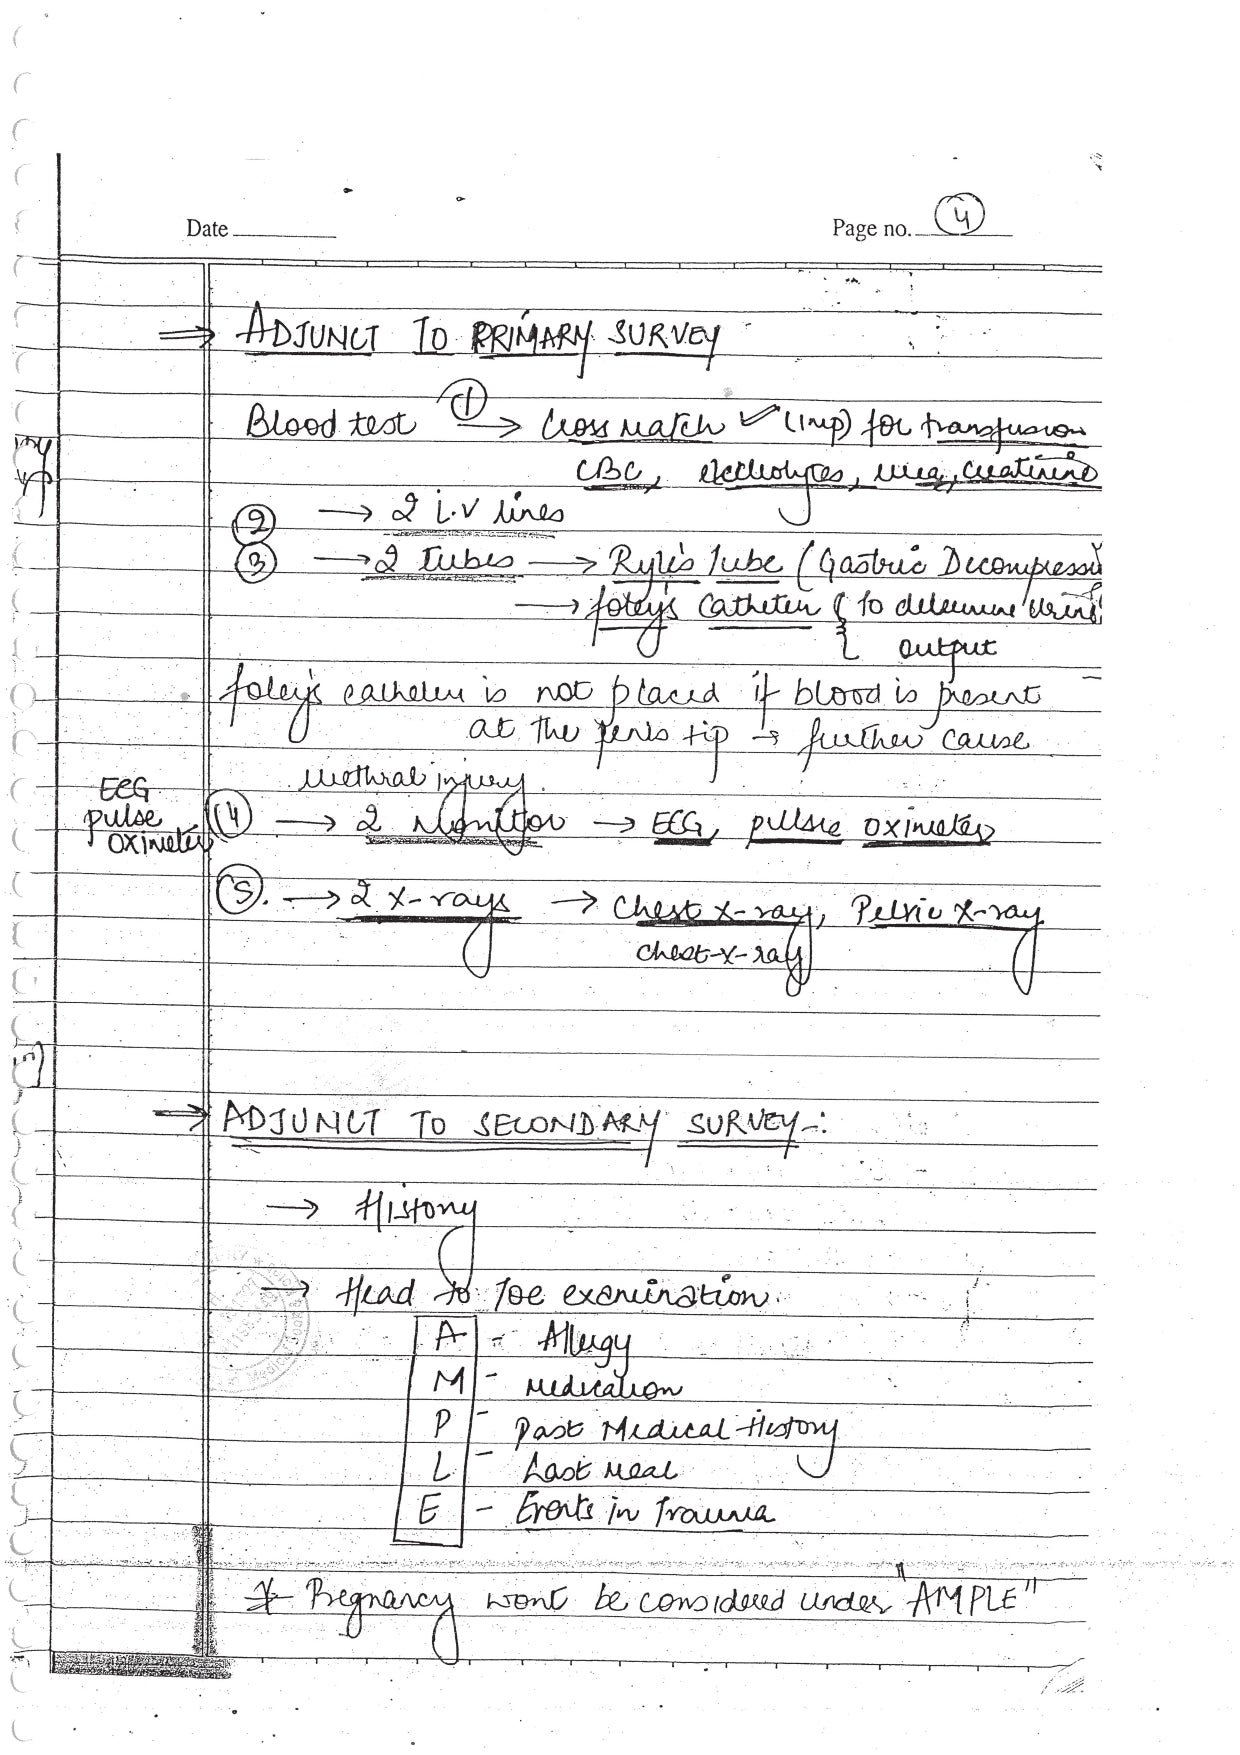 Date
Page no. 4
⇒ ADJUNCT TO PRIMARY SURVEY
Blood test ① → Cross match ✓ (imp) for transfusion
CBC, electrolytes, urea, creatinine
② → 2 i.v lines
③ → 2 Tubes → Ryle's Tube (Gastric Decompressi
→ foley's Catheter { to determine urine
output
foley's catheter is not placed if blood is present
at the penis tip → further cause
urethral injury.
ECG
pulse
oximeter
④ → 2 Monitor → ECG, pulse oximeter
⑤. → 2 X-rays → Chest X-ray, Pelvic X-ray
Chest-X-ray
⇒ ADJUNCT TO SECONDARY SURVEY -:
→ History
→ Head to Toe examination.
A - Allergy
M - Medication
P - Past Medical History
L - Last Meal
E - Events in Trauma
* Pregnancy wont be considered under "AMPLE"